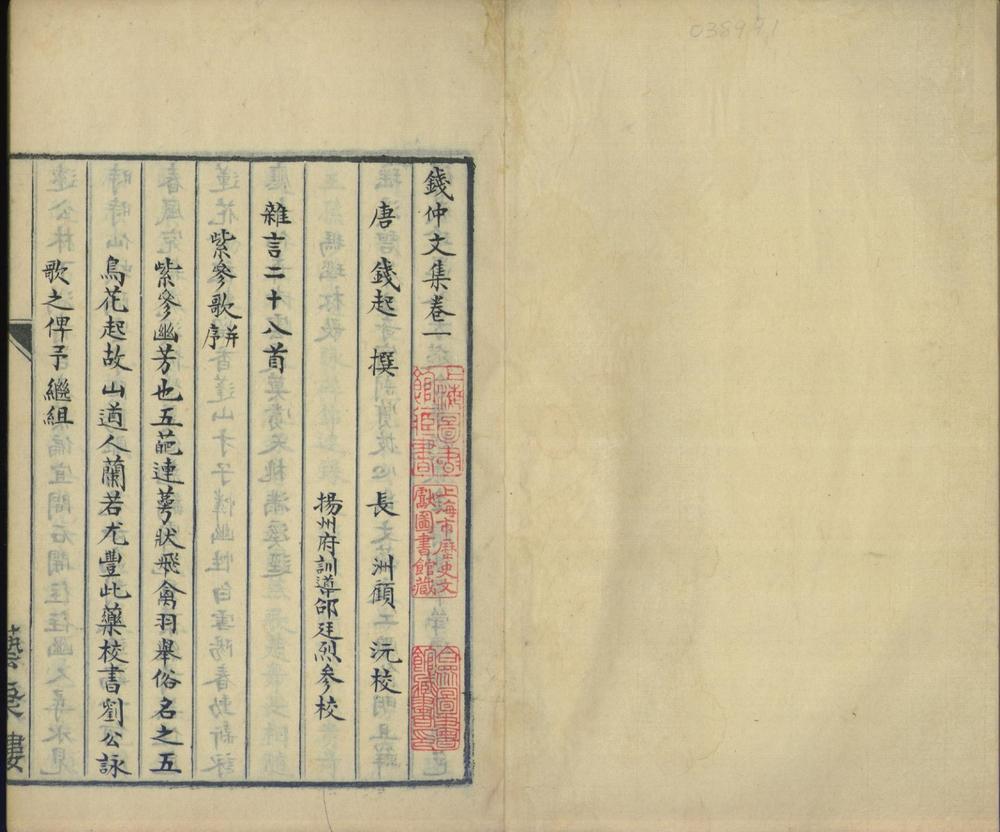 038991
錢仲文集卷一
唐 錢起 撰 長洲顧 沅校
揚州府訓導邵廷烈參校
雜言二十八首
紫參歌并序
紫參幽芳也五葩連萼狀飛禽羽舉俗名之五
鳥花起故山道人蘭若尤豐此藥校書劉公詠
歌之俾予繼組
上海圖書館藏書
上海市歷史文獻圖書館藏
合眾圖書館藏書印